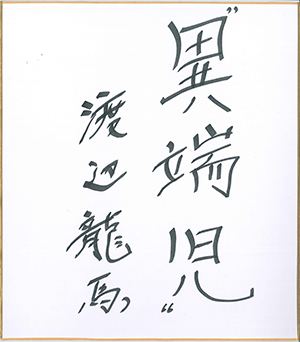 "異端児"
渡辺龍馬